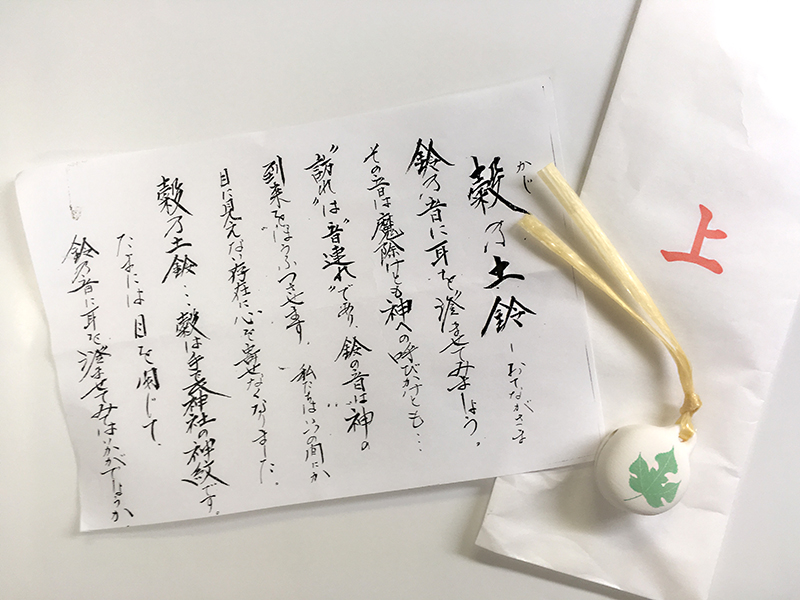 かじ
穀乃土鈴 ーおてながさま
鈴乃音に耳を澄ませてみましょう。
その音は魔除けとも神への呼びかけとも…
"訪れ"は"音連れ"であり、鈴の音は神の
到来をほうふつさせます。 私たちはいつの間にか
目に見えない存在に心を寄せなくなりました。
穀乃土鈴…穀は手長神社の神紋です。
たまには目を閉じて、
鈴乃音に耳を澄ませてみてはいかがでしょうか。
上